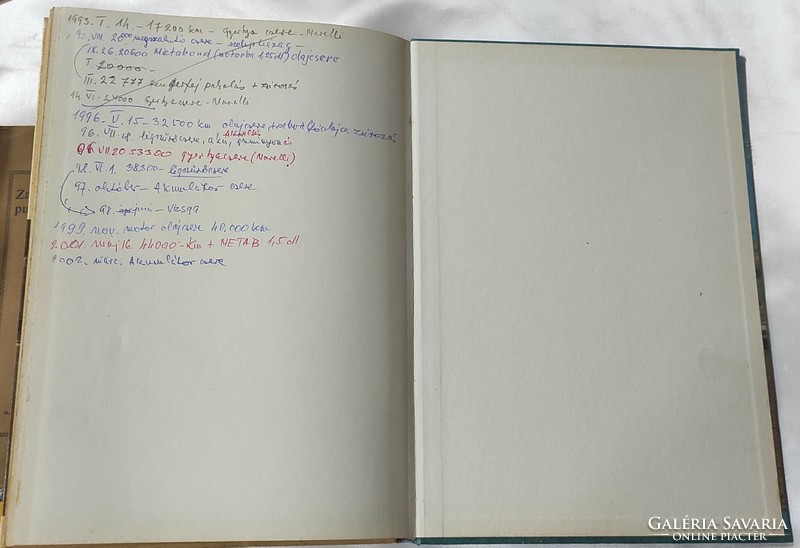 1993. I. 14. – 17200 km – Gyertya csere – Marelli
VII. 20000 csere
IX. 26. 20600 Metabond (motorba 1,25 dl) olajcsere
I. 20000 –
III. 22777 + zsírozás
VI. 24000 Gyertyacsere – Marelli
1996. V. 15 – 32500 km olajcsere, zsírozás
96. VII. 18. légszűrőcsere, aku,
96 VII 20 33300 gyertyacsere (Marelli)
98. VI. 1. 38300 – légszűrőcsere
97. október – Akumlátor csere
98. – Vizsga
1999. nov. motor olajcsere 40.000 km
2001. máj 16. 44000 – km + METAB 1,5 dl.
2002. márc. Akumlátor csere
Zá
pu
GALÉRIA SAVARIA
ONLINE PIACTÉR